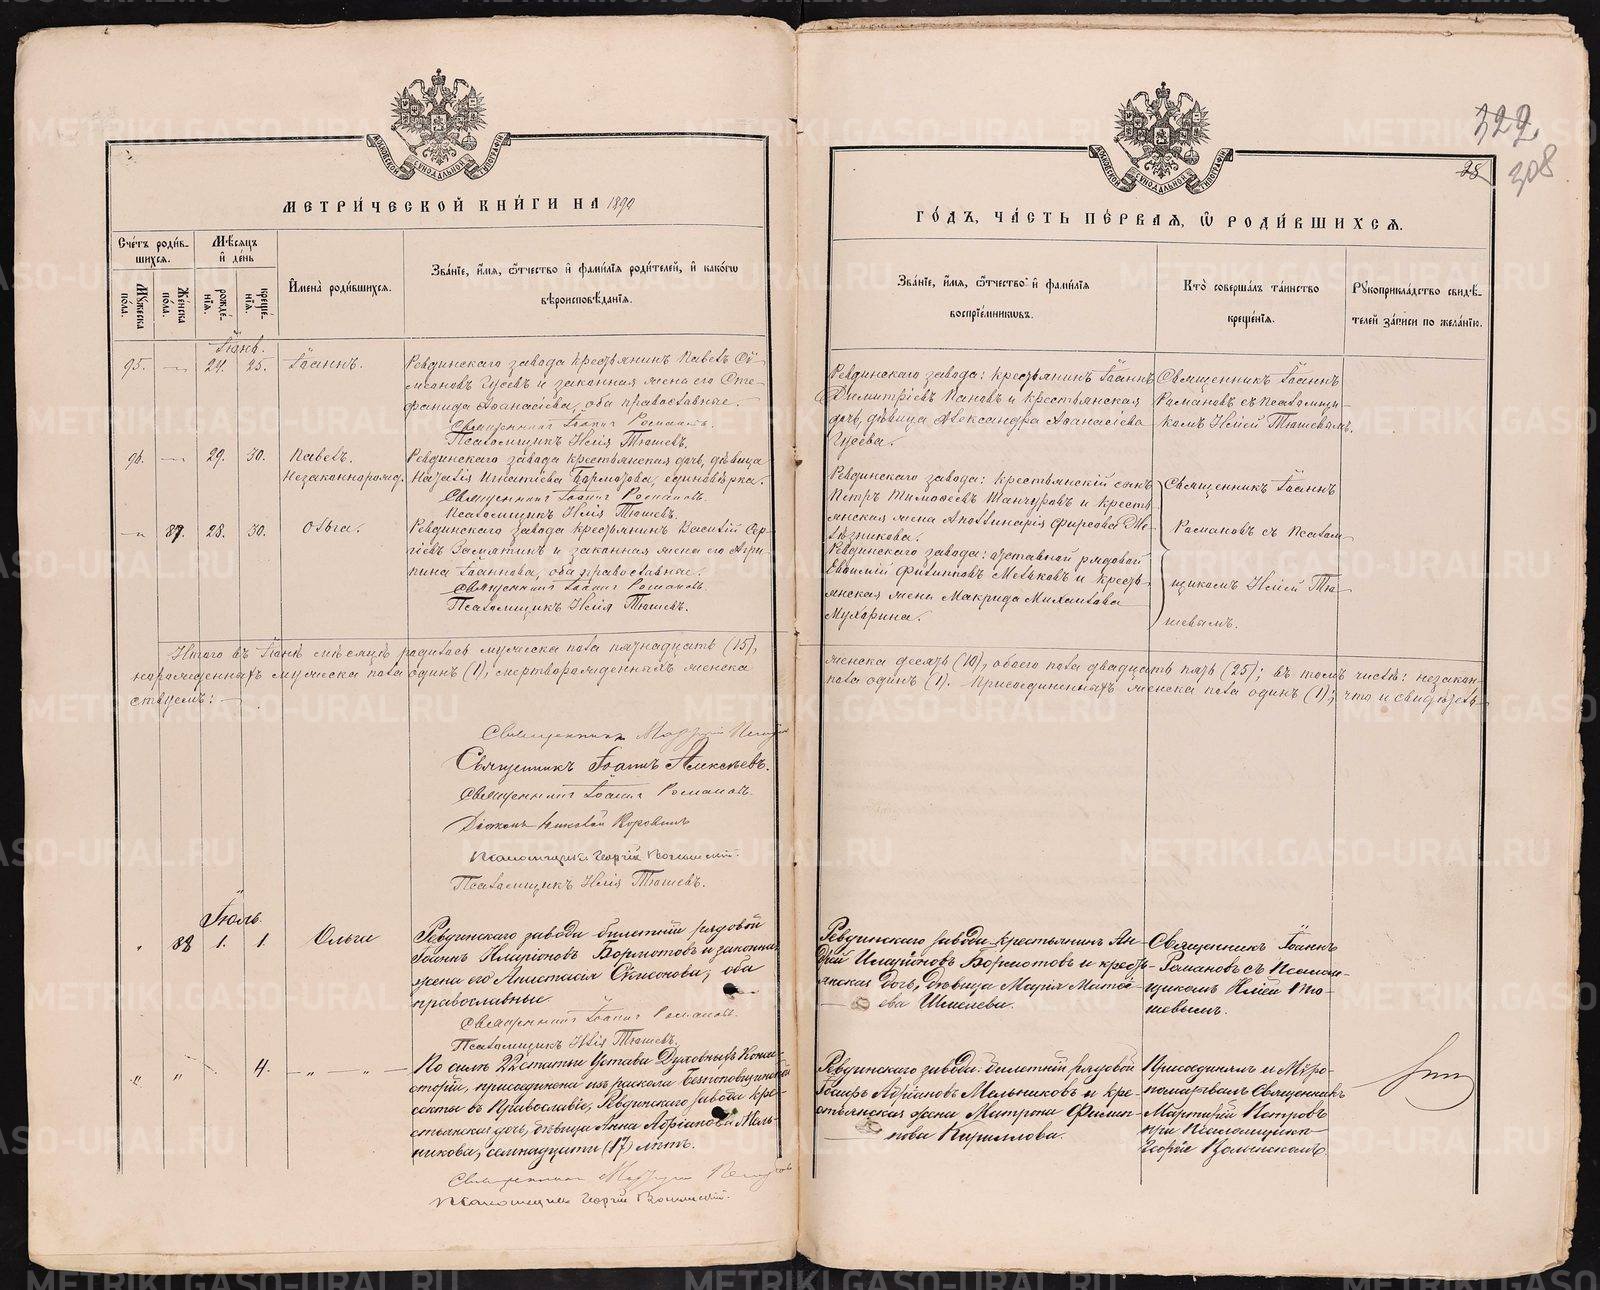 МОСКОВСКОЙ СѴНОДАЛЬНОЙ ТИПОГРАФІИ
МЕТРИ́ЧЕСКОЙ КНИ́ГИ НА 1890
Сче́тъ роди́в-
шихся.
Мѣ́сяцъ
и҆ де́нь
Мꙋ́жеска
по́ла.
Же́нска
по́ла.
рожде́-
нїѧ.
креще́-
нїѧ.
И҆мена̀ роди́вшихсѧ.
Зва́нїе, и҆́мѧ, ѻ҆́тчество и҆ фамилїѧ роди́телей, и҆ како́гѡ
вѣроисповѣ́данїѧ.
Іюнь.
95. — 24. 25. Іоаннъ.
Ревдинскаго завода крестьянинъ Павелъ Си-
меоновъ Гусевъ и законная жена его Сте-
фанида Аѳанасіева, оба православные.
Священникъ Іоаннъ Романовъ.
Псаломщикъ Илія Тюшевъ.
96. — 29. 30. Павелъ.
Незаконнорожд.
Ревдинскаго завода крестьянская дочь, дѣвица
Наталія Игнатіева Бормотова, единовѣрка.
Священникъ Іоаннъ Романовъ.
Псаломщикъ Илія Тюшевъ.
—„— 87. 28. 30. Ольга.
Ревдинскаго завода крестьянинъ Василій Сер-
гіевъ Замятинъ и законная жена его Агрип-
пина Іоаннова, оба православные.
Священникъ Іоаннъ Романовъ.
Псаломщикъ Илія Тюшевъ.
Итого въ Іюнѣ мѣсяцѣ родилось мужеска пола пятнадцать (15),
норожденныхъ мужеска пола одинъ (1), смерторожденныхъ женска
ствуемъ: —
Священникъ
Священникъ Іоаннъ Алексѣевъ.
Священникъ Іоаннъ Романовъ.
Діаконъ Николай Коровинъ
Псаломщикъ Георгій Волынскій.
Псаломщикъ Илія Тюшевъ.
Іюль.
„ 88 1. 1. Ольга
Ревдинскаго завода билетный рядовой
Іоаннъ Иларіоновъ Бормотовъ и законная
жена его Анастасія Симеонова, оба
православные
Священникъ Іоаннъ Романовъ.
Псаломщикъ Илія Тюшевъ.
„ „ 4. — „ — „ —
По силѣ 22 статьи Устава Духовныхъ Конси-
сторій, присоединена изъ раскола безпоповщинской
секты въ Православіе, Ревдинскаго завода кре-
стьянская дочь, дѣвица Анна Адріанова Мель-
никова, семнадцати (17) лѣтъ.
Священникъ Мартирій Петровъ
Псаломщикъ Георгій Волынскій.
322
308
28
МОСКОВСКОЙ СѴНОДАЛЬНОЙ ТИПОГРАФІИ
ГО́ДЪ, ЧА́СТЬ ПЕ́РВАѦ, Ѡ҆ РОДИ́ВШИХСѦ.
Зва́нїе, и҆́мѧ, ѻ҆́тчество и҆ фамилїѧ
воспрїе́мникѡвъ.
Кто̀ соверша́лъ та́инство
креще́нїѧ.
Рꙋкоприкла́дство свидѣ́-
телей за́писи по жела́нїю.
Ревдинскаго завода: крестьянинъ Іоаннъ
Димитріевъ Пановъ и крестьянская
дочь, дѣвица Александра Аѳанасіева
Гусева.
Священникъ Іоаннъ
Романовъ съ псаломщи-
комъ Иліей Тюшевымъ.
Ревдинскаго завода: крестьянскій сынъ
Петръ Тимоѳеевъ Шанчуровъ и кресть-
янская жена Аполлинарія Фирсова Же-
лѣзникова.
Ревдинскаго завода: отставной рядовой
Евѳимій Филипповъ Мельковъ и кресть-
янская жена Макрида Михаилова
Мухорина.
Священникъ Іоаннъ
Романовъ съ псалом-
щикомъ Иліей Тю-
шевымъ.
женска десять (10), обоего пола двадцать пять (25); въ томъ числѣ: незакон-
пола одинъ (1). Присоединенныхъ женска пола одинъ (1); что и свидѣтель-
Ревдинскаго завода крестьянинъ Ан-
дрей Иларіоновъ Бормотовъ и кресть-
янская дочь, дѣвица Марія Матѳі-
ева Шмелева.
Священникъ Іоаннъ
Романовъ съ псалом-
щикомъ Иліей Тю-
шевымъ.
Ревдинскаго завода: билетный рядовой
Іосифъ Адріановъ Мельниковъ и кре-
стьянская жена Матрона Филип-
пова Кириллова.
Присоединялъ и Мѵро-
помазывалъ Священникъ
Мартирій Петровъ
при псаломщикѣ
Георгіѣ Волынскомъ
METRIKI.GASO-URAL.RU